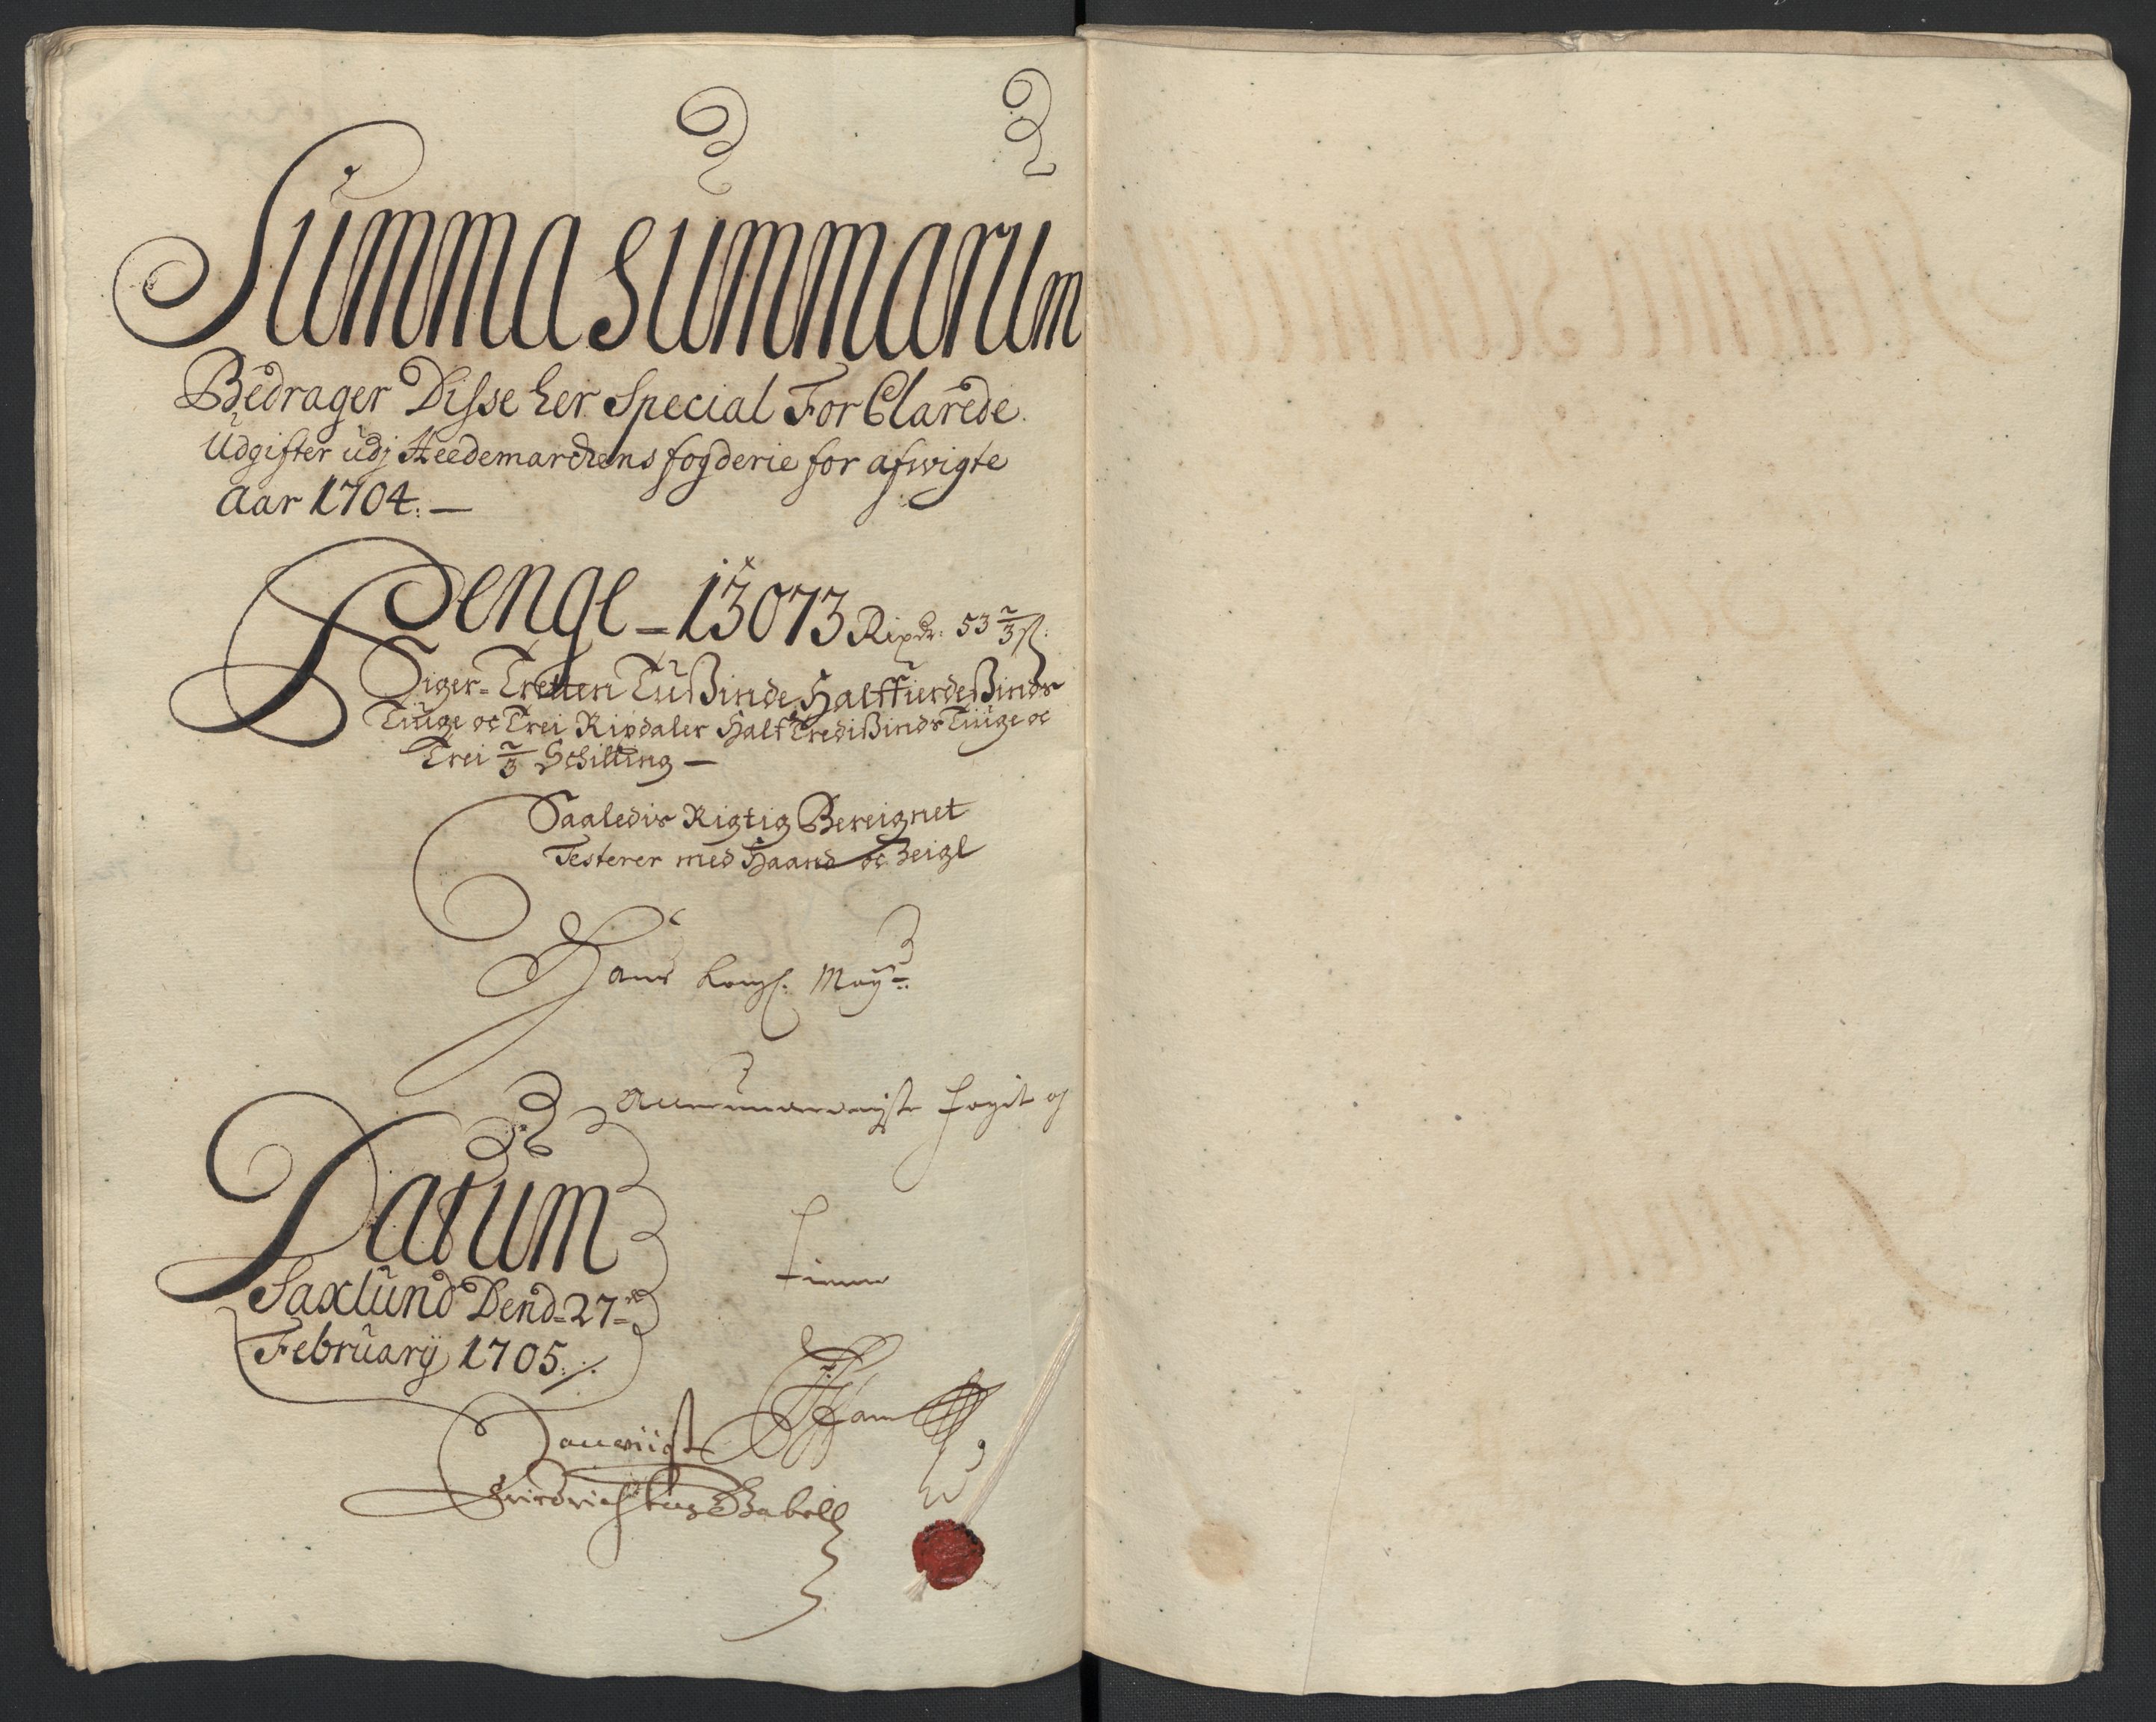 Summa Summarum
Bedrager Disse her Special ForClarede
Udgifter udj Heedemarckens fogderie for afwigte
Aar 1704. —
Penge – 13073 Rixdr: 53 2/3 ß:
Siger = Tretten Tußinde Halffierdeßinds
Tiuge oc Trei Rixdaler Halftredißinds Tiuge oc
Trei 2/3 Schilling —
Saaledis Rigtig Bereignet
Testerer med Haand oc Zeigl
Hans Kongl. May
allerunderdanigste foget og
tiener
Datum
Saxlund Dend = 27 =
February 1705 ./.
Friedrich Gabell